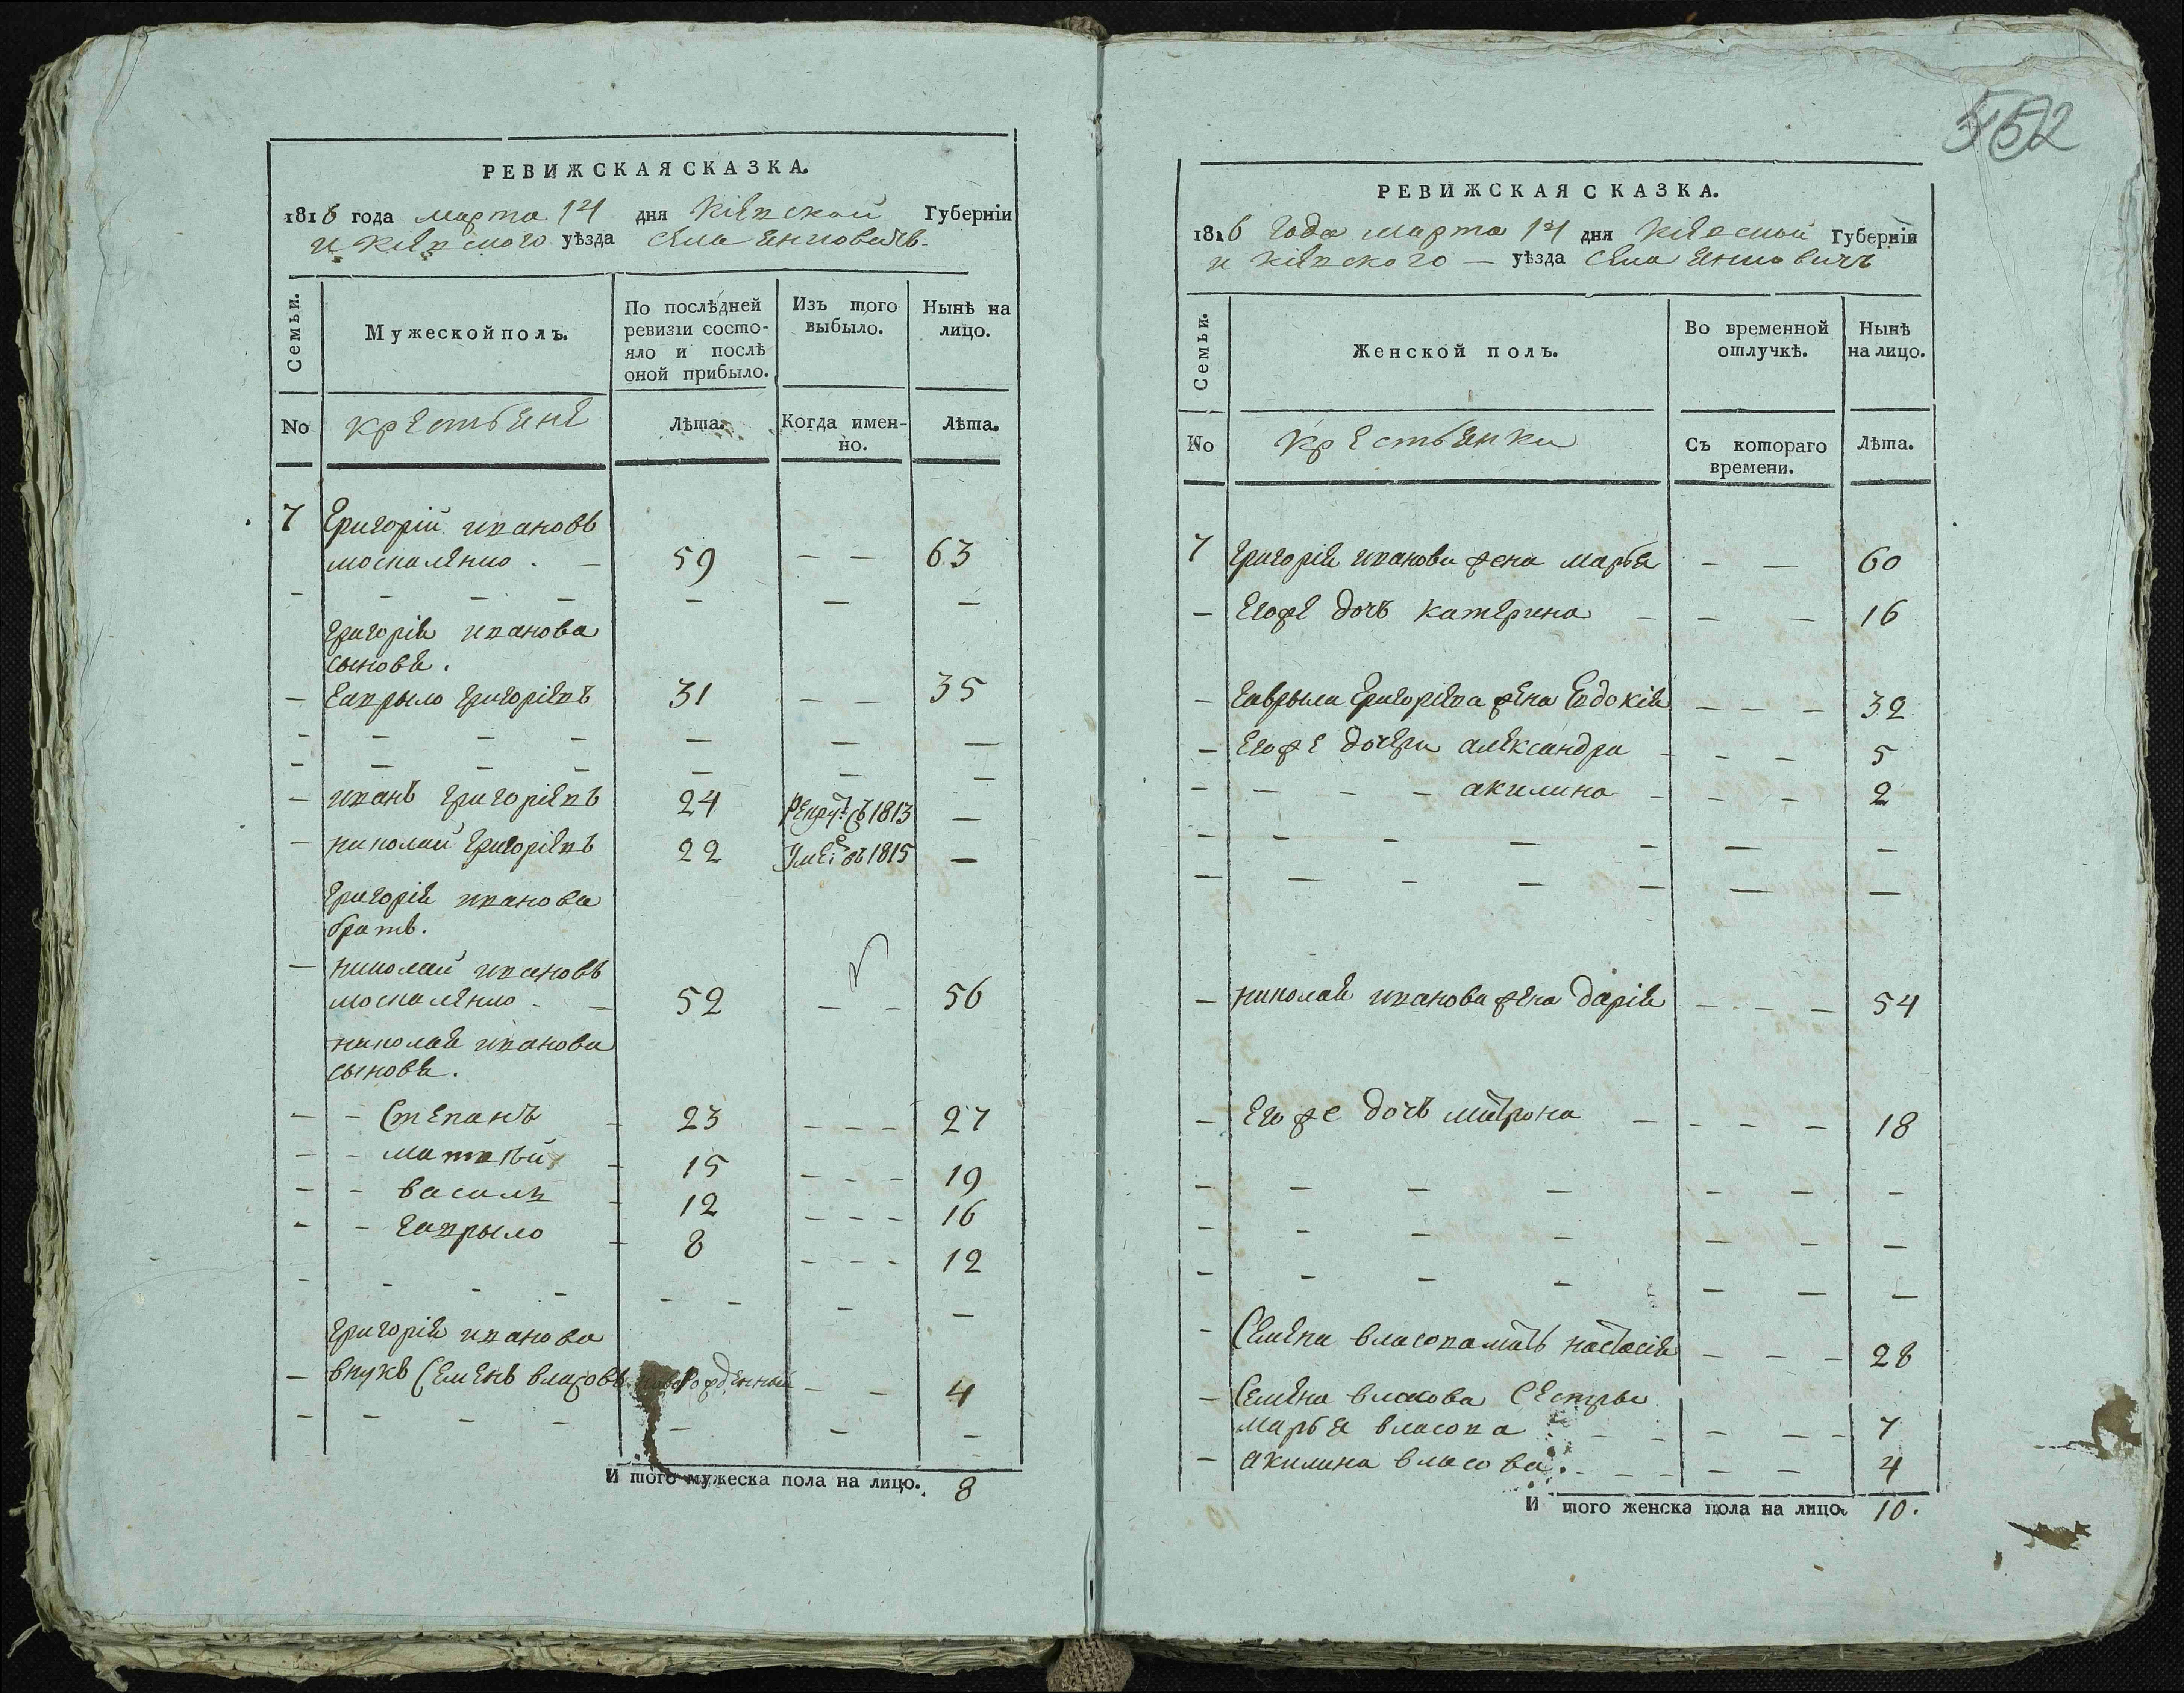 РЕВИЖСКАЯ СКАЗКА.
1816 года марта 14 дня Кіевской Губерніи
и Кіевского уѣзда села Янковичъ
Семьи.
Мужеской полъ.
По послѣдней ревизіи состояло и послѣ оной прибыло.
Изъ того выбыло.
Нынѣ на лицо.
No
крестьяне
Лѣта.
Когда именно.
Лѣта.
7 Григорій Ивановъ
Москаленко . — 59 — — 63
Григорія Иванова
сыновя .
— Гаврыло Григоріевъ 31 — — 35
— Иванъ Григоріевъ 24 1813 —
— Николай Григоріевъ 22 Уме: въ 1815 —
Григорія Иванова
братъ.
— Николай Ивановъ
Москаленко . — 52 — — 56
Николая Иванова
сыновя .
— — Степанъ — 23 — — — 27
— — Матвѣй — 15 — — — 19
— — Василь — 12 — — — 16
— — Гаврыло — 8 — — — 12
Григорія Иванова
— внукъ Семенъ Власовъ новорожденный — — 4
И того мужеска пола на лицо. 8
552
РЕВИЖСКАЯ СКАЗКА.
1816 года марта 14 дня Кіевской Губерніи
и Кіевского — уѣзда села Янковичъ
Семьи.
Женской полъ.
Во временной отлучкѣ.
Нынѣ на лицо.
No
крестьянки
Съ котораго времени.
Лѣта.
7 Григорія Иванова жена Марья — — 60
— Егоже дочъ Катерина — — — 16
— Гаврыла Григоріева жена Евдокія — — — 32
— Егоже дочери Александра — — — 5
— — — — Акилина — — — 2
— Николая Иванова жена Дарія — — — 54
— Егоже дочъ Матрона — — — — 18
— Семена Власова мать Настасія — — — 28
— Семена Власова сестры
Марья Власова — — — — — 7
— Акилина Власова . — — — — — 4
И того женска пола на лицо. 10.